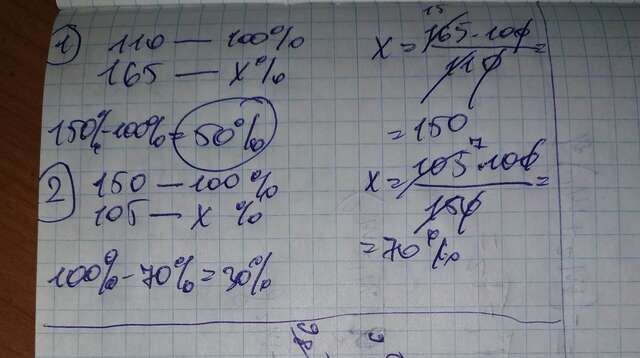 1) 110 — 100%
165 — x%
x = 165·100 / 110 =
= 150
150% - 100% = 50%
2) 150 — 100%
105 — x%
x = 105·100 / 150 =
= 70%
100% - 70% = 30%